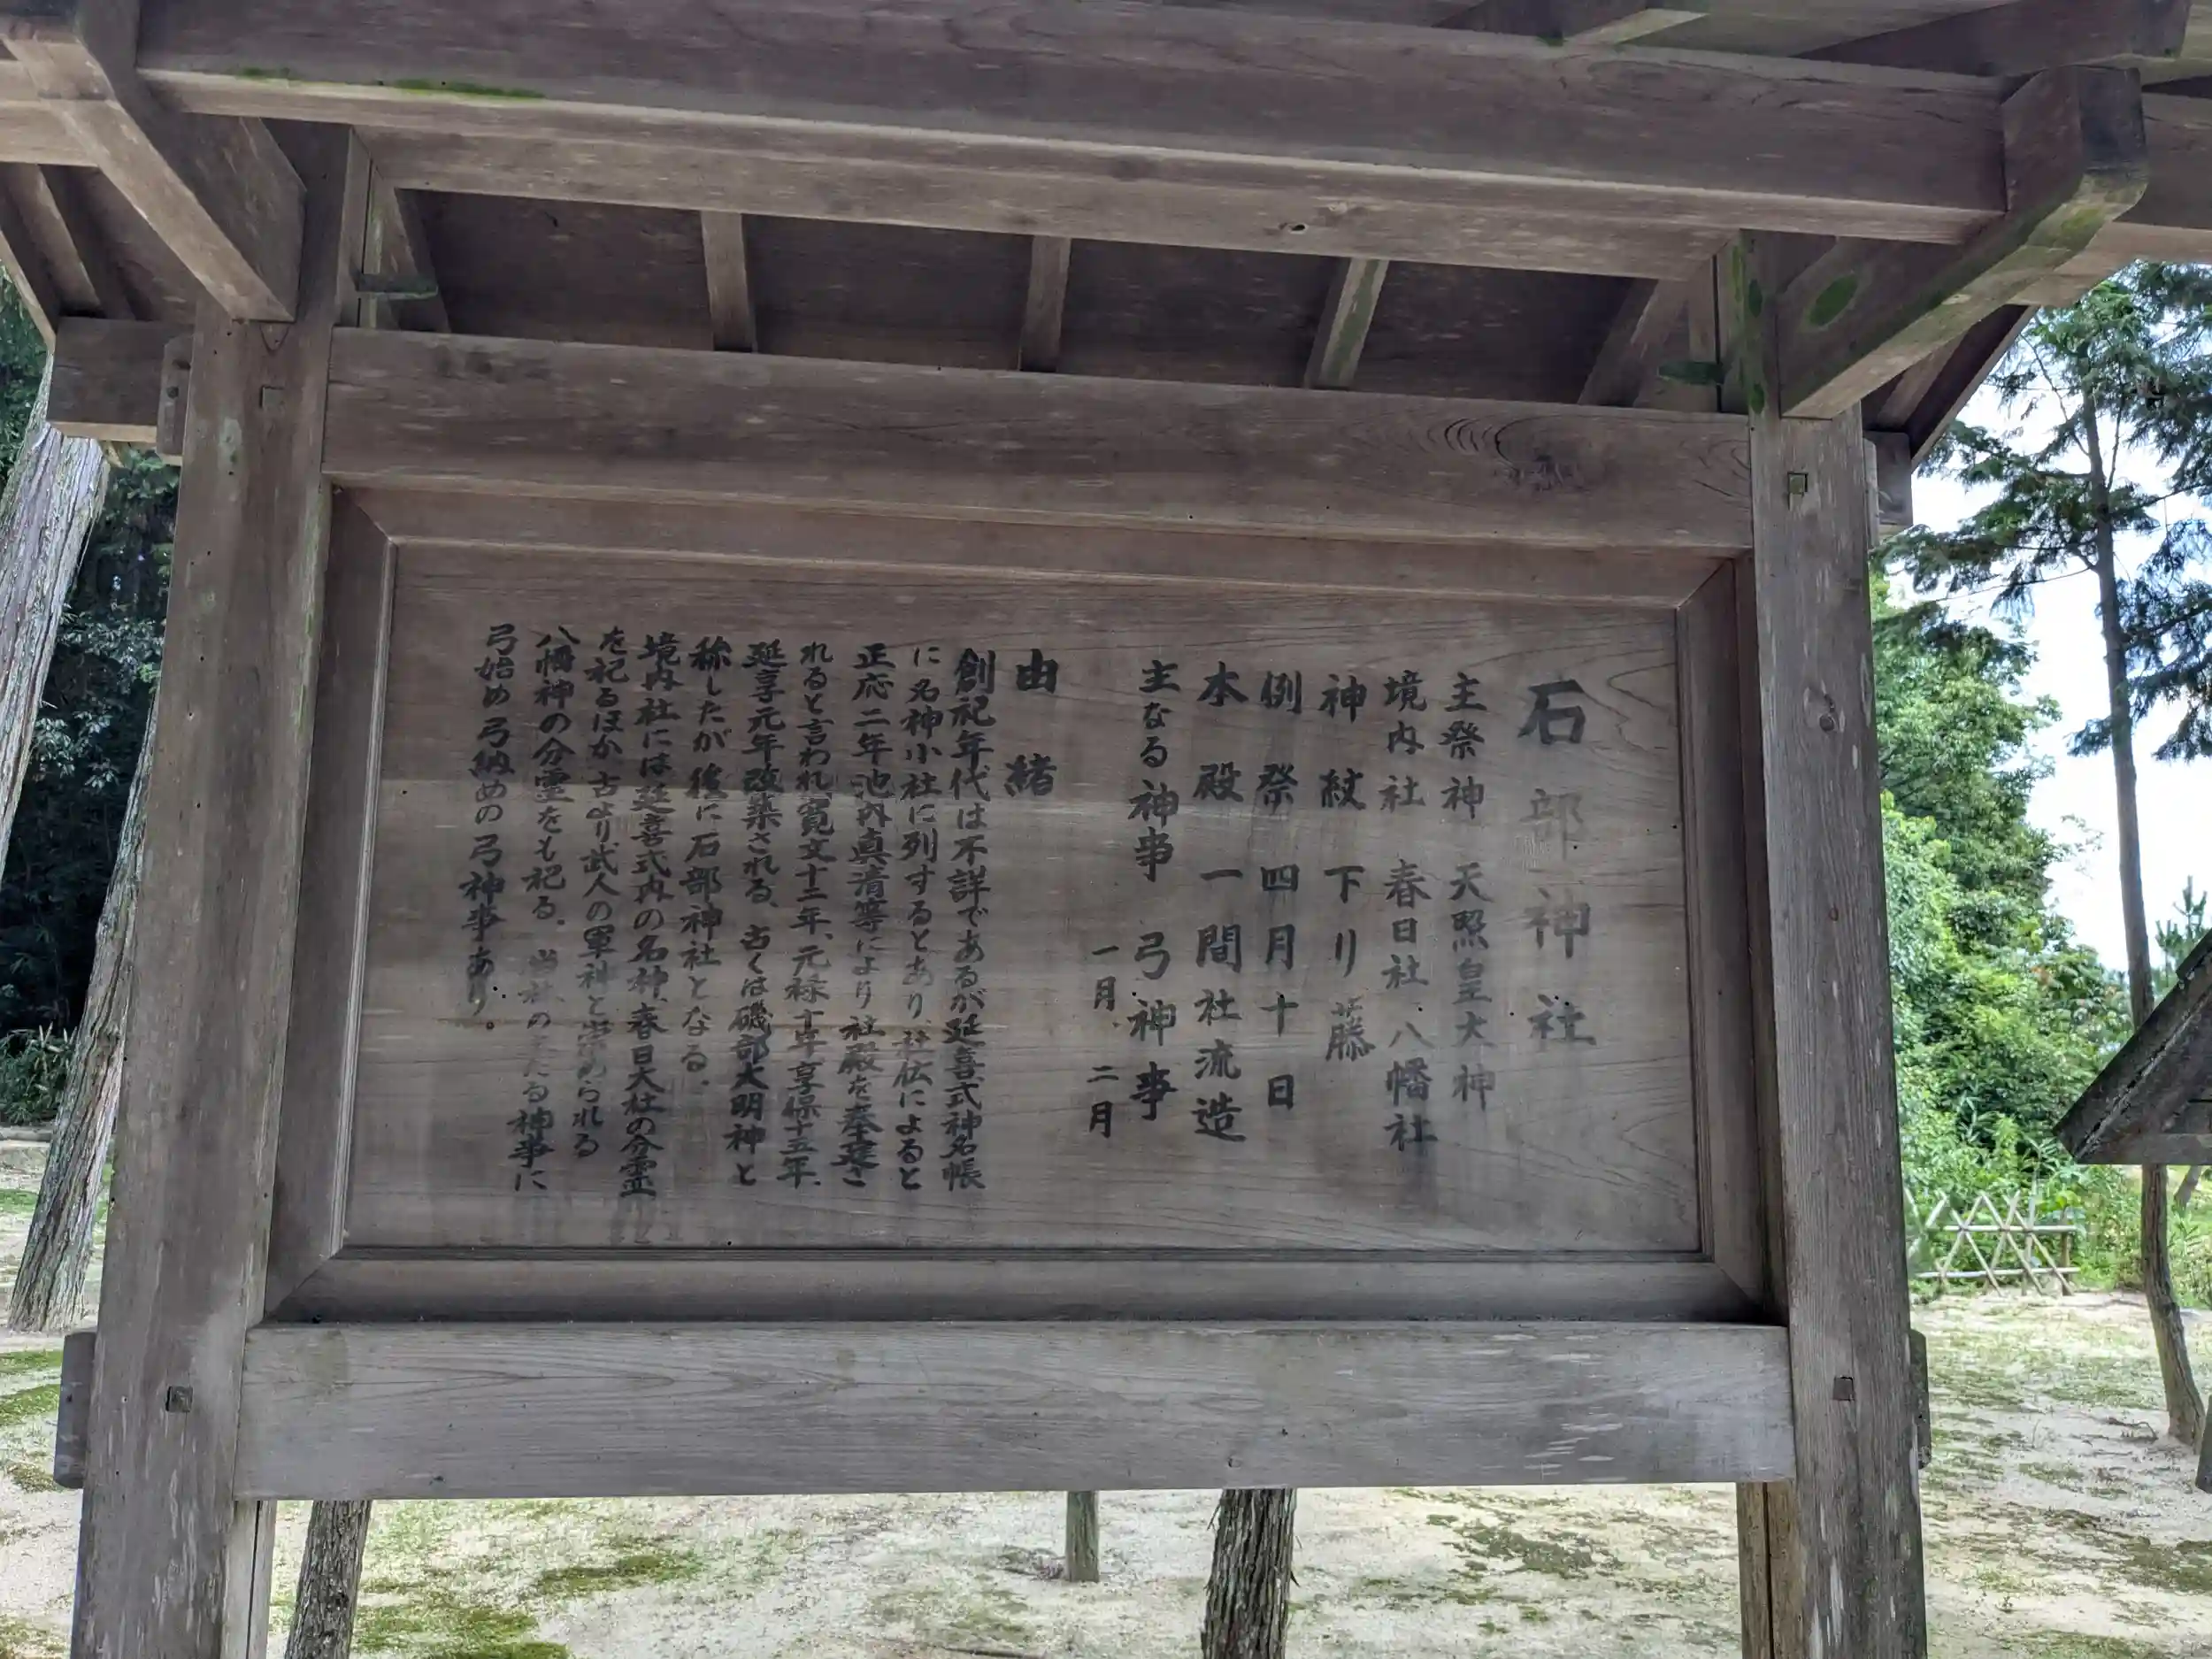 石部神社
主祭神 天照皇大神
境内社 春日社、八幡社
神紋 下り藤
例祭 四月十日
本殿 一間社流造
主なる神事 弓神事
一月、二月
由緒
創祀年代は不詳であるが延喜式神名帳
に名神小社に列するとあり、社伝によると
正応二年池内真清等により社殿を奉建さ
れると言われ、寛文十二年、元禄十年、享保十五年、
延享元年改築される、古くは磯部大明神と
称したが後に石部神社となる。
境内社には延喜式内の名神、春日大社の分霊
を祀るほか古より武人の軍神と崇められる
八幡神の分霊をも祀る。当社の主たる神事に
弓始め弓納めの弓神事あり。